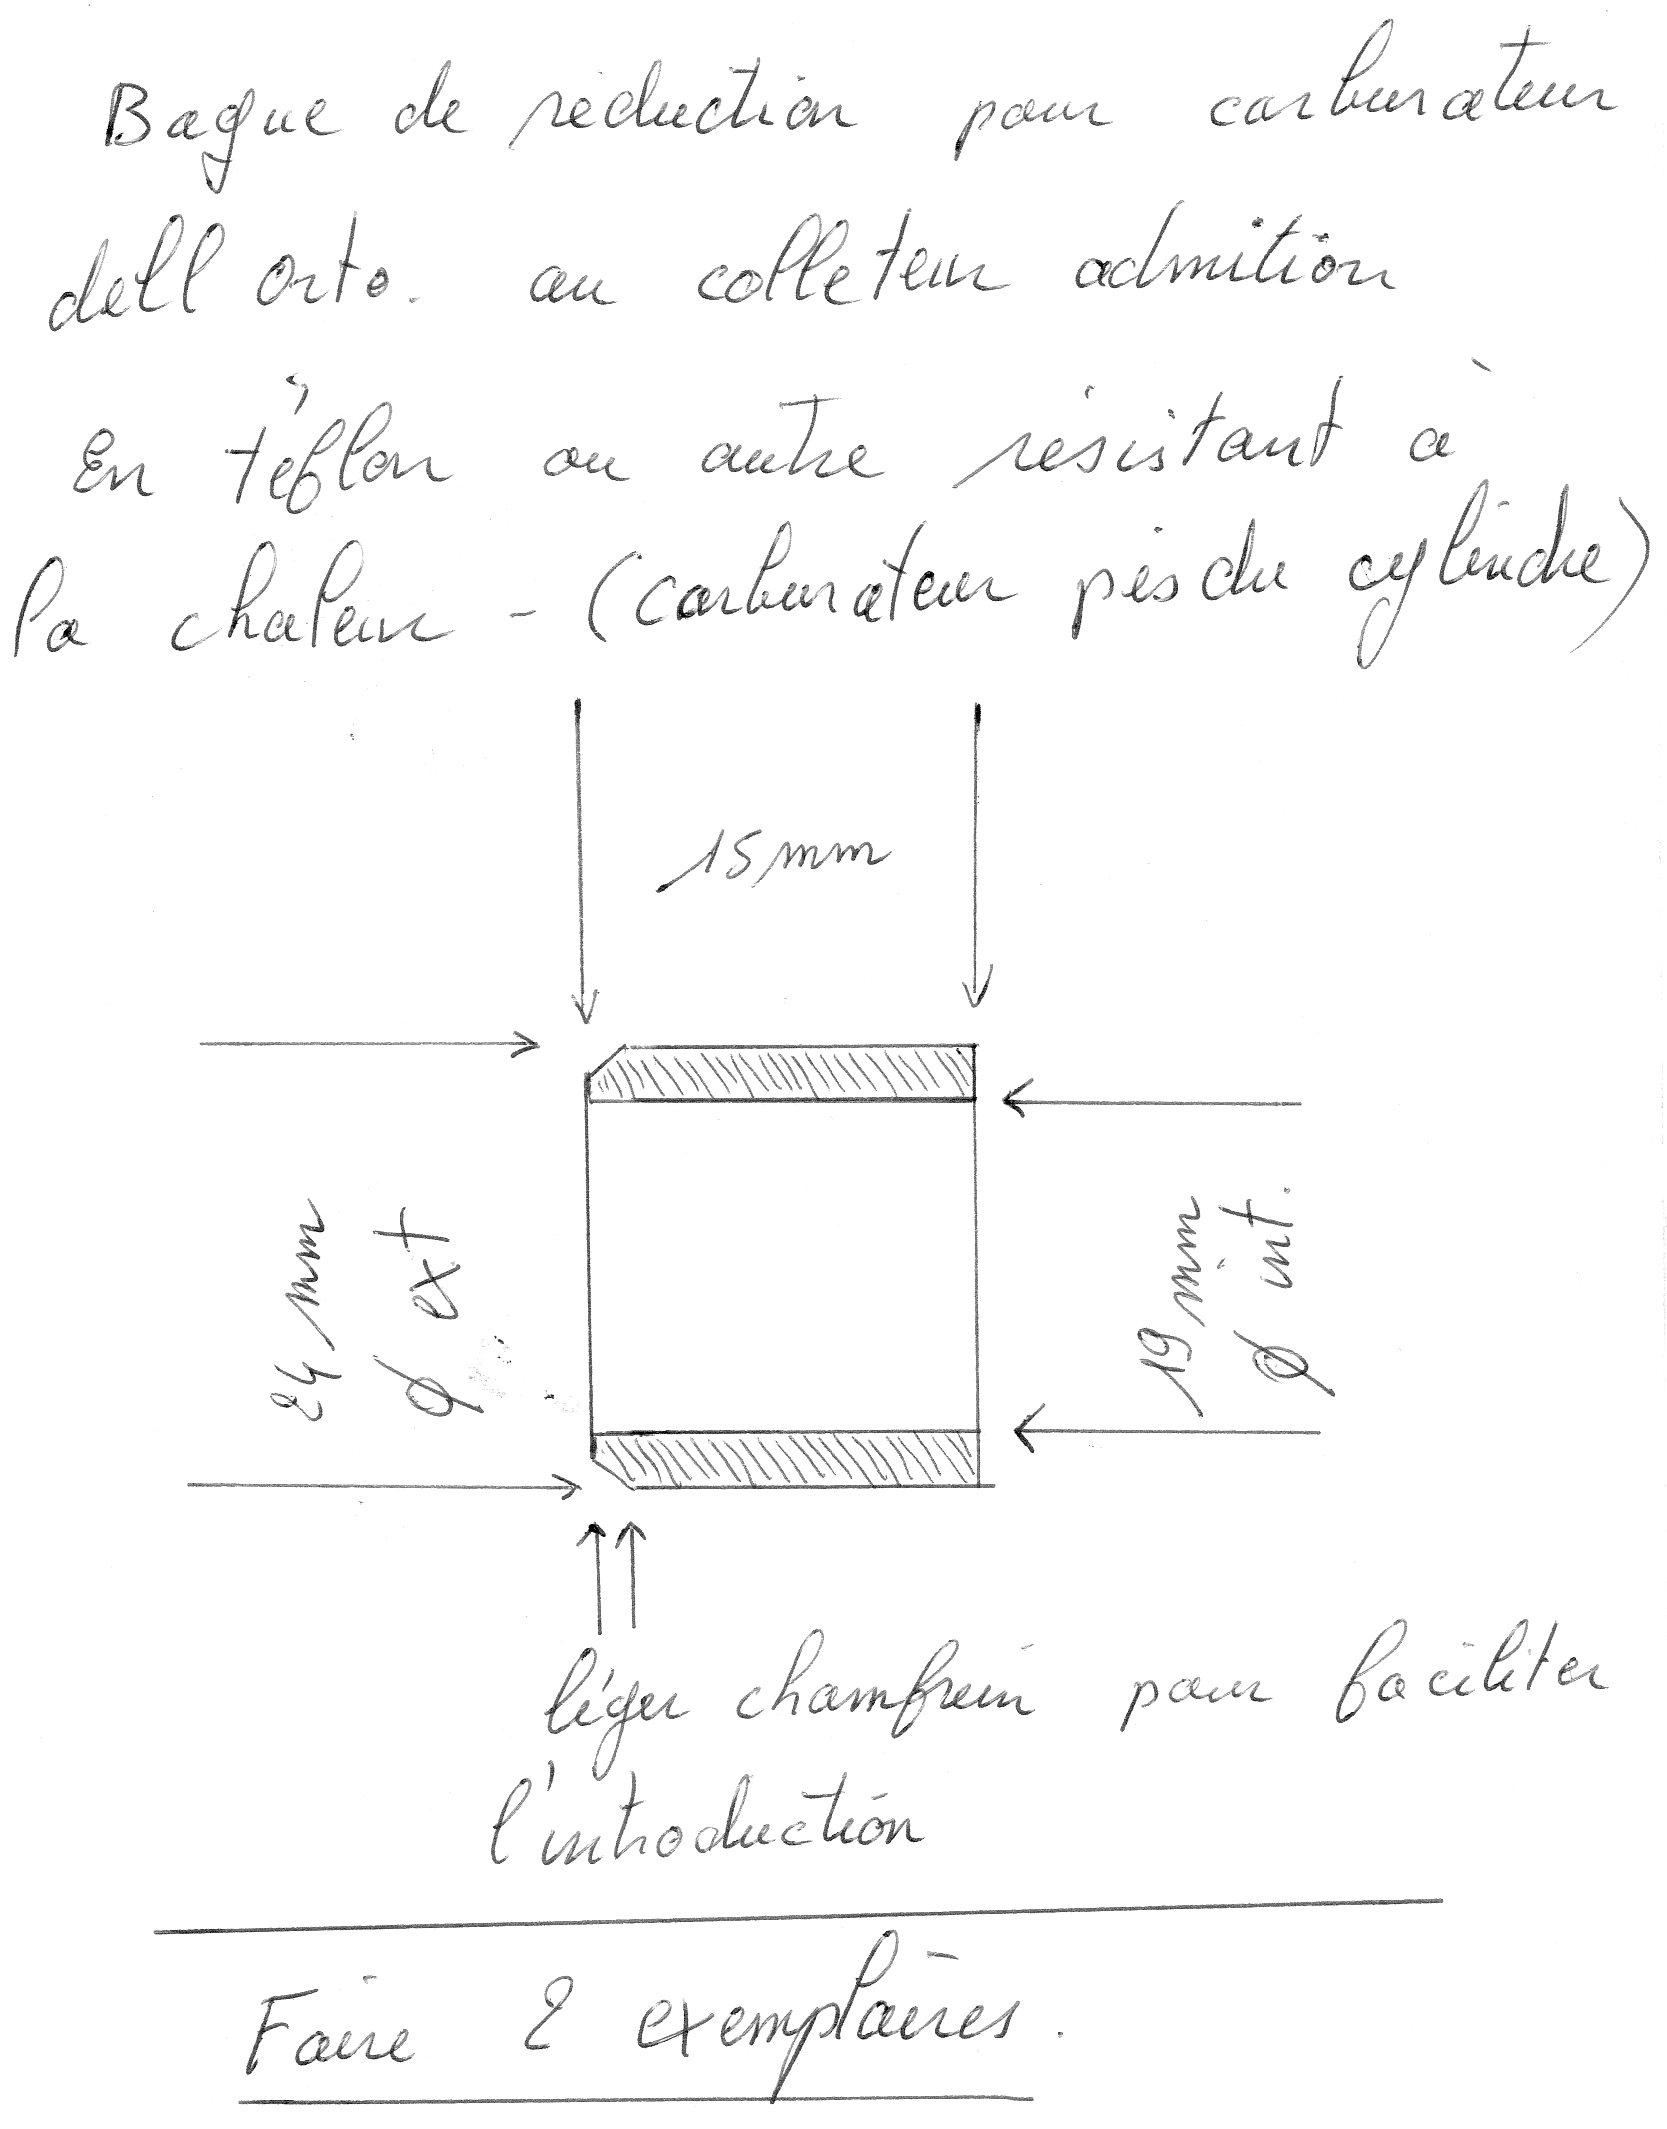 Bague de réduction pour carburateur
dell orto. au colleteur admition
En téflon ou autre résistant à
la chaleur - (carburateur près du cylindre)
15 mm
24 mm
Ø ext
19 mm
Ø int.
léger chamfrein pour faciliter
l'introduction
Faire 2 exemplaires.